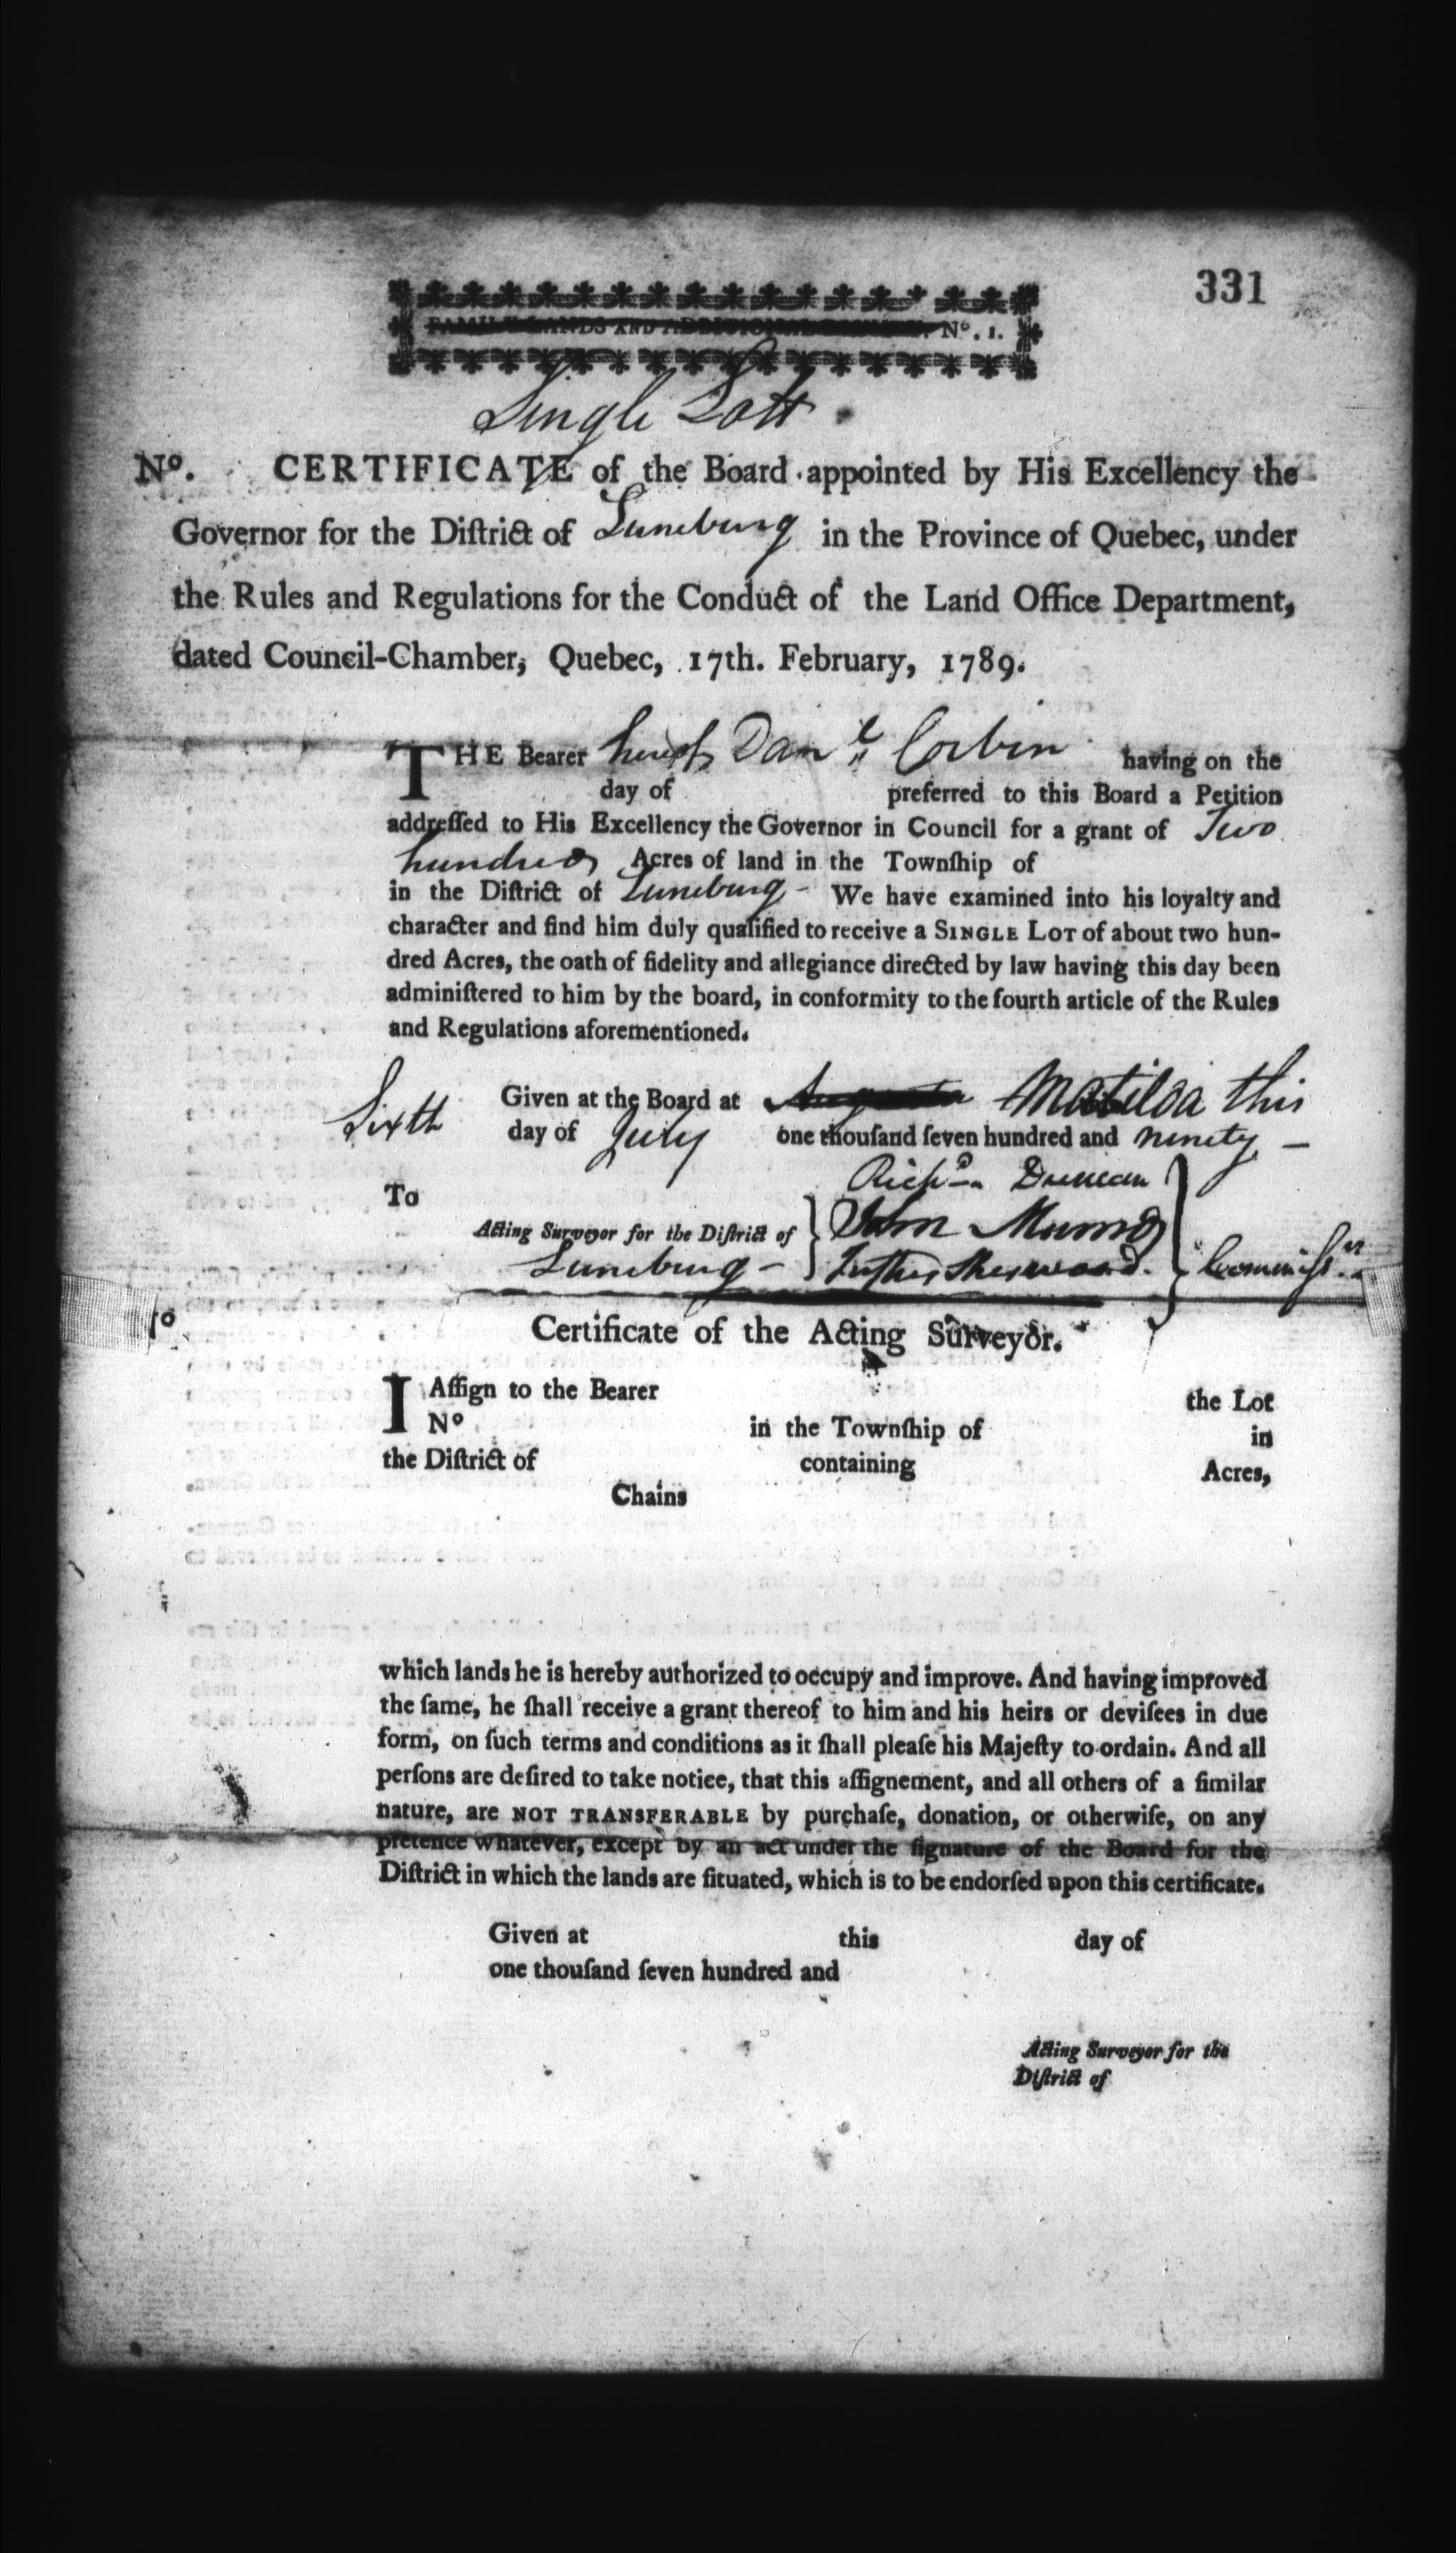 331
FAMILY LANDS AND ADDITIONAL BOUNTY. Nº. 1.
Single Lott
Nº. CERTIFICATE of the Board appointed by His Excellency the
Governor for the Diſtrict of Luneburg in the Province of Quebec, under
the Rules and Regulations for the Conduct of the Land Office Department,
dated Council-Chamber, Quebec, 17th. February, 1789.
THE Bearer hereof Danˡ Corbin having on the
day of preferred to this Board a Petition
addreſſed to His Excellency the Governor in Council for a grant of Two
hundred Acres of land in the Townſhip of
in the Diſtrict of Luneburg - We have examined into his loyalty and
character and find him duly qualified to receive a SINGLE LOT of about two hun-
dred Acres, the oath of fidelity and allegiance directed by law having this day been
adminiſtered to him by the board, in conformity to the fourth article of the Rules
and Regulations aforementioned.
Given at the Board at Augusta Matilda this
Sixth day of July one thouſand ſeven hundred and ninety —
Richᵈ. Duncan
To
John Munro
Acting Surveyor for the Diſtrict of
Luneburg - Justus Sherwood. Commiſsʳˢ
Certificate of the Acting Surveyor.
I Aſſign to the Bearer the Lot
Nº in the Townſhip of in
the Diſtrict of containing Acres,
Chains
which lands he is hereby authorized to occupy and improve. And having improved
the ſame, he ſhall receive a grant thereof to him and his heirs or deviſees in due
form, on ſuch terms and conditions as it ſhall pleaſe his Majeſty to ordain. And all
perſons are deſired to take notice, that this aſſignement, and all others of a ſimilar
nature, are NOT TRANSFERABLE by purchaſe, donation, or otherwiſe, on any
pretence whatever, except by an act under the ſignature of the Board for the
Diſtrict in which the lands are ſituated, which is to be endorſed upon this certificate.
Given at this day of
one thouſand ſeven hundred and
Acting Surveyor for the
Diſtrict of